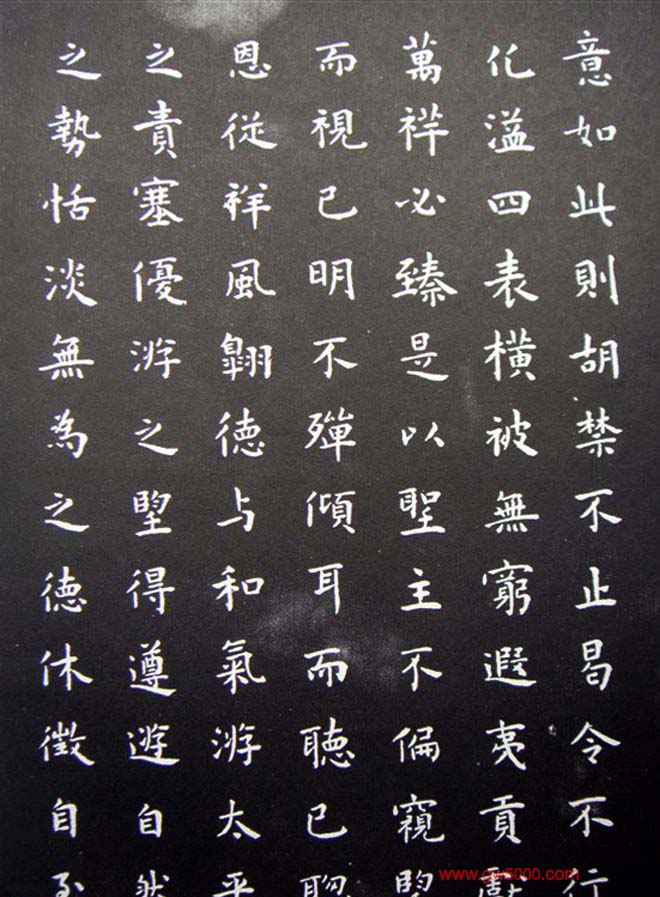 意如此則胡禁不止曷令不行
化溢四表橫被無窮遐夷貢獻
萬祥必臻是以聖主不偏窺望
而視已明不殫傾耳而聽已聰
恩從祥風翺德与和氣游太平
之責塞優游之望得遵遊自然
之勢恬淡無為之德休徵自至